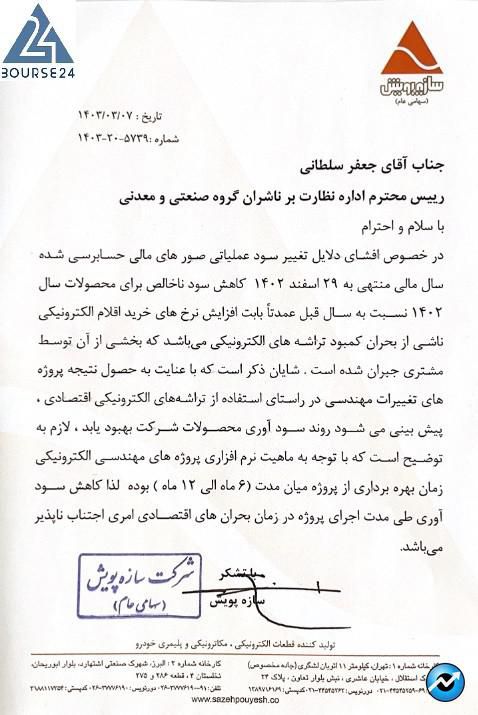 BOURSE24
سازه پویش
(سهامی عام)
تاریخ : ۱۴۰۳/۰۳/۰۷
شماره :۵۷۳۹-۲۰-۱۴۰۳
جناب آقای جعفر سلطانی
رییس محترم اداره نظارت بر ناشران گروه صنعتی و معدنی
با سلام و احترام
در خصوص افشای دلایل تغییر سود عملیاتی صور های مالی حسابرسی شده
سال مالی منتهی به ۲۹ اسفند ۱۴۰۲ کاهش سود ناخالص برای محصولات سال
۱۴۰۲ نسبت به سال قبل عمدتاً بابت افزایش نرخ های خرید اقلام الکترونیکی
ناشی از بحران کمبود تراشه های الکترونیکی می‌باشد که بخشی از آن توسط
مشتری جبران شده است . شایان ذکر است که با عنایت به حصول نتیجه پروژه
های تغییرات مهندسی در راستای استفاده از تراشه‌های الکترونیکی اقتصادی ،
پیش بینی می شود روند سود آوری محصولات شرکت بهبود یابد ، لازم به
توضیح است که با توجه به ماهیت نرم افزاری پروژه های مهندسی الکترونیکی
زمان بهره برداری از پروژه میان مدت (۶ ماه الی ۱۲ ماه ) بوده لذا کاهش سود
آوری طی مدت اجرای پروژه در زمان بحران های اقتصادی امری اجتناب ناپذیر
می‌باشد.
با تشکر
سازه پویش
شرکت سازه پویش
(سهامی عام)
تولید کننده قطعات الکترونیکی ، مکاترونیکی و پلیمری خودرو
کارخانه شماره ۱ : تهران، کیلومتر ۱۱ اتوبان لشگری (جاده مخصوص)
استقلال ، خیابان عاشری ، نبش بلوار تعاون ، پلاک ۲۴
کارخانه شماره ۲ : البرز، شهرک صنعتی اشتهارد، بلوار ابوریحان،
نخلستان ۴ ، قطعه ۲۸۶ و ۲۷۵
www.sazehpouyesh.co